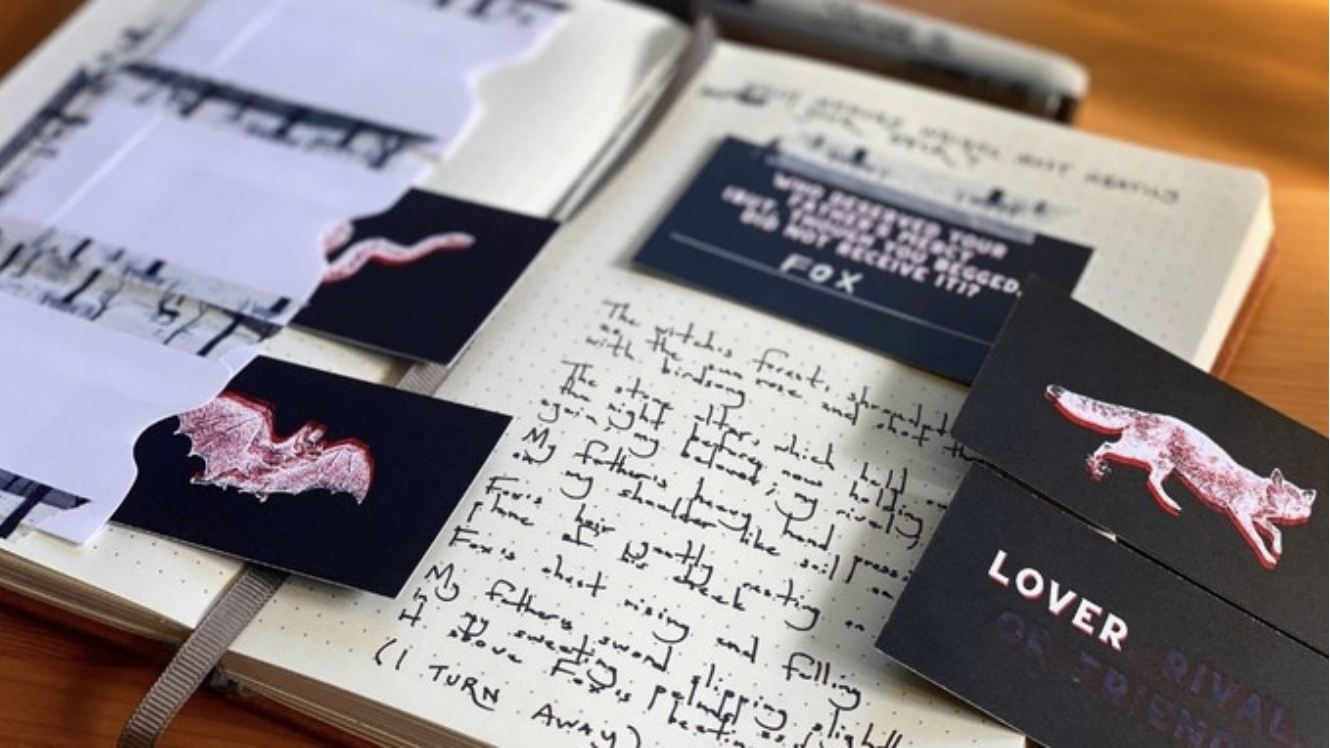 MUST
WHO DESERVED YOUR
FATHER'S MERCY
(BUT THOUGH YOU BEGGED,
DID NOT RECEIVE IT)?
FOX
The witch's forest, shrouded
as the sun rose and shot th
with birdsong
The stone altar, which held
the night before now holding
again, my beloved, my rival,
My father's heavy hand press
on my shoulder like soil
Fox's hair gently resting on
plane of his cheek
Fox's chest rising and falling
My father's sword slipping slightly
in my sweating
It above Fox's beating
(I TURN AWAY)
LOVER
RIVAL
OR FRIEND